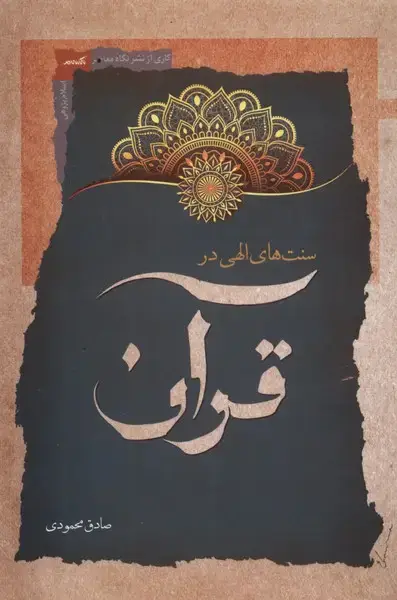 کاری از نشر نگاه معاصر
اسلام‌پژوهی
سنت‌های الهی در
قرآن
صادق محمودی